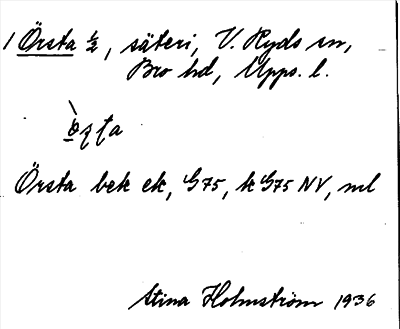 1 Örsta ½, säteri, V. Ryds sn,
Bro hd, Upps. l.
Örsta bek ek, G75, k G75 NV, ml
Stina Holmström 1936